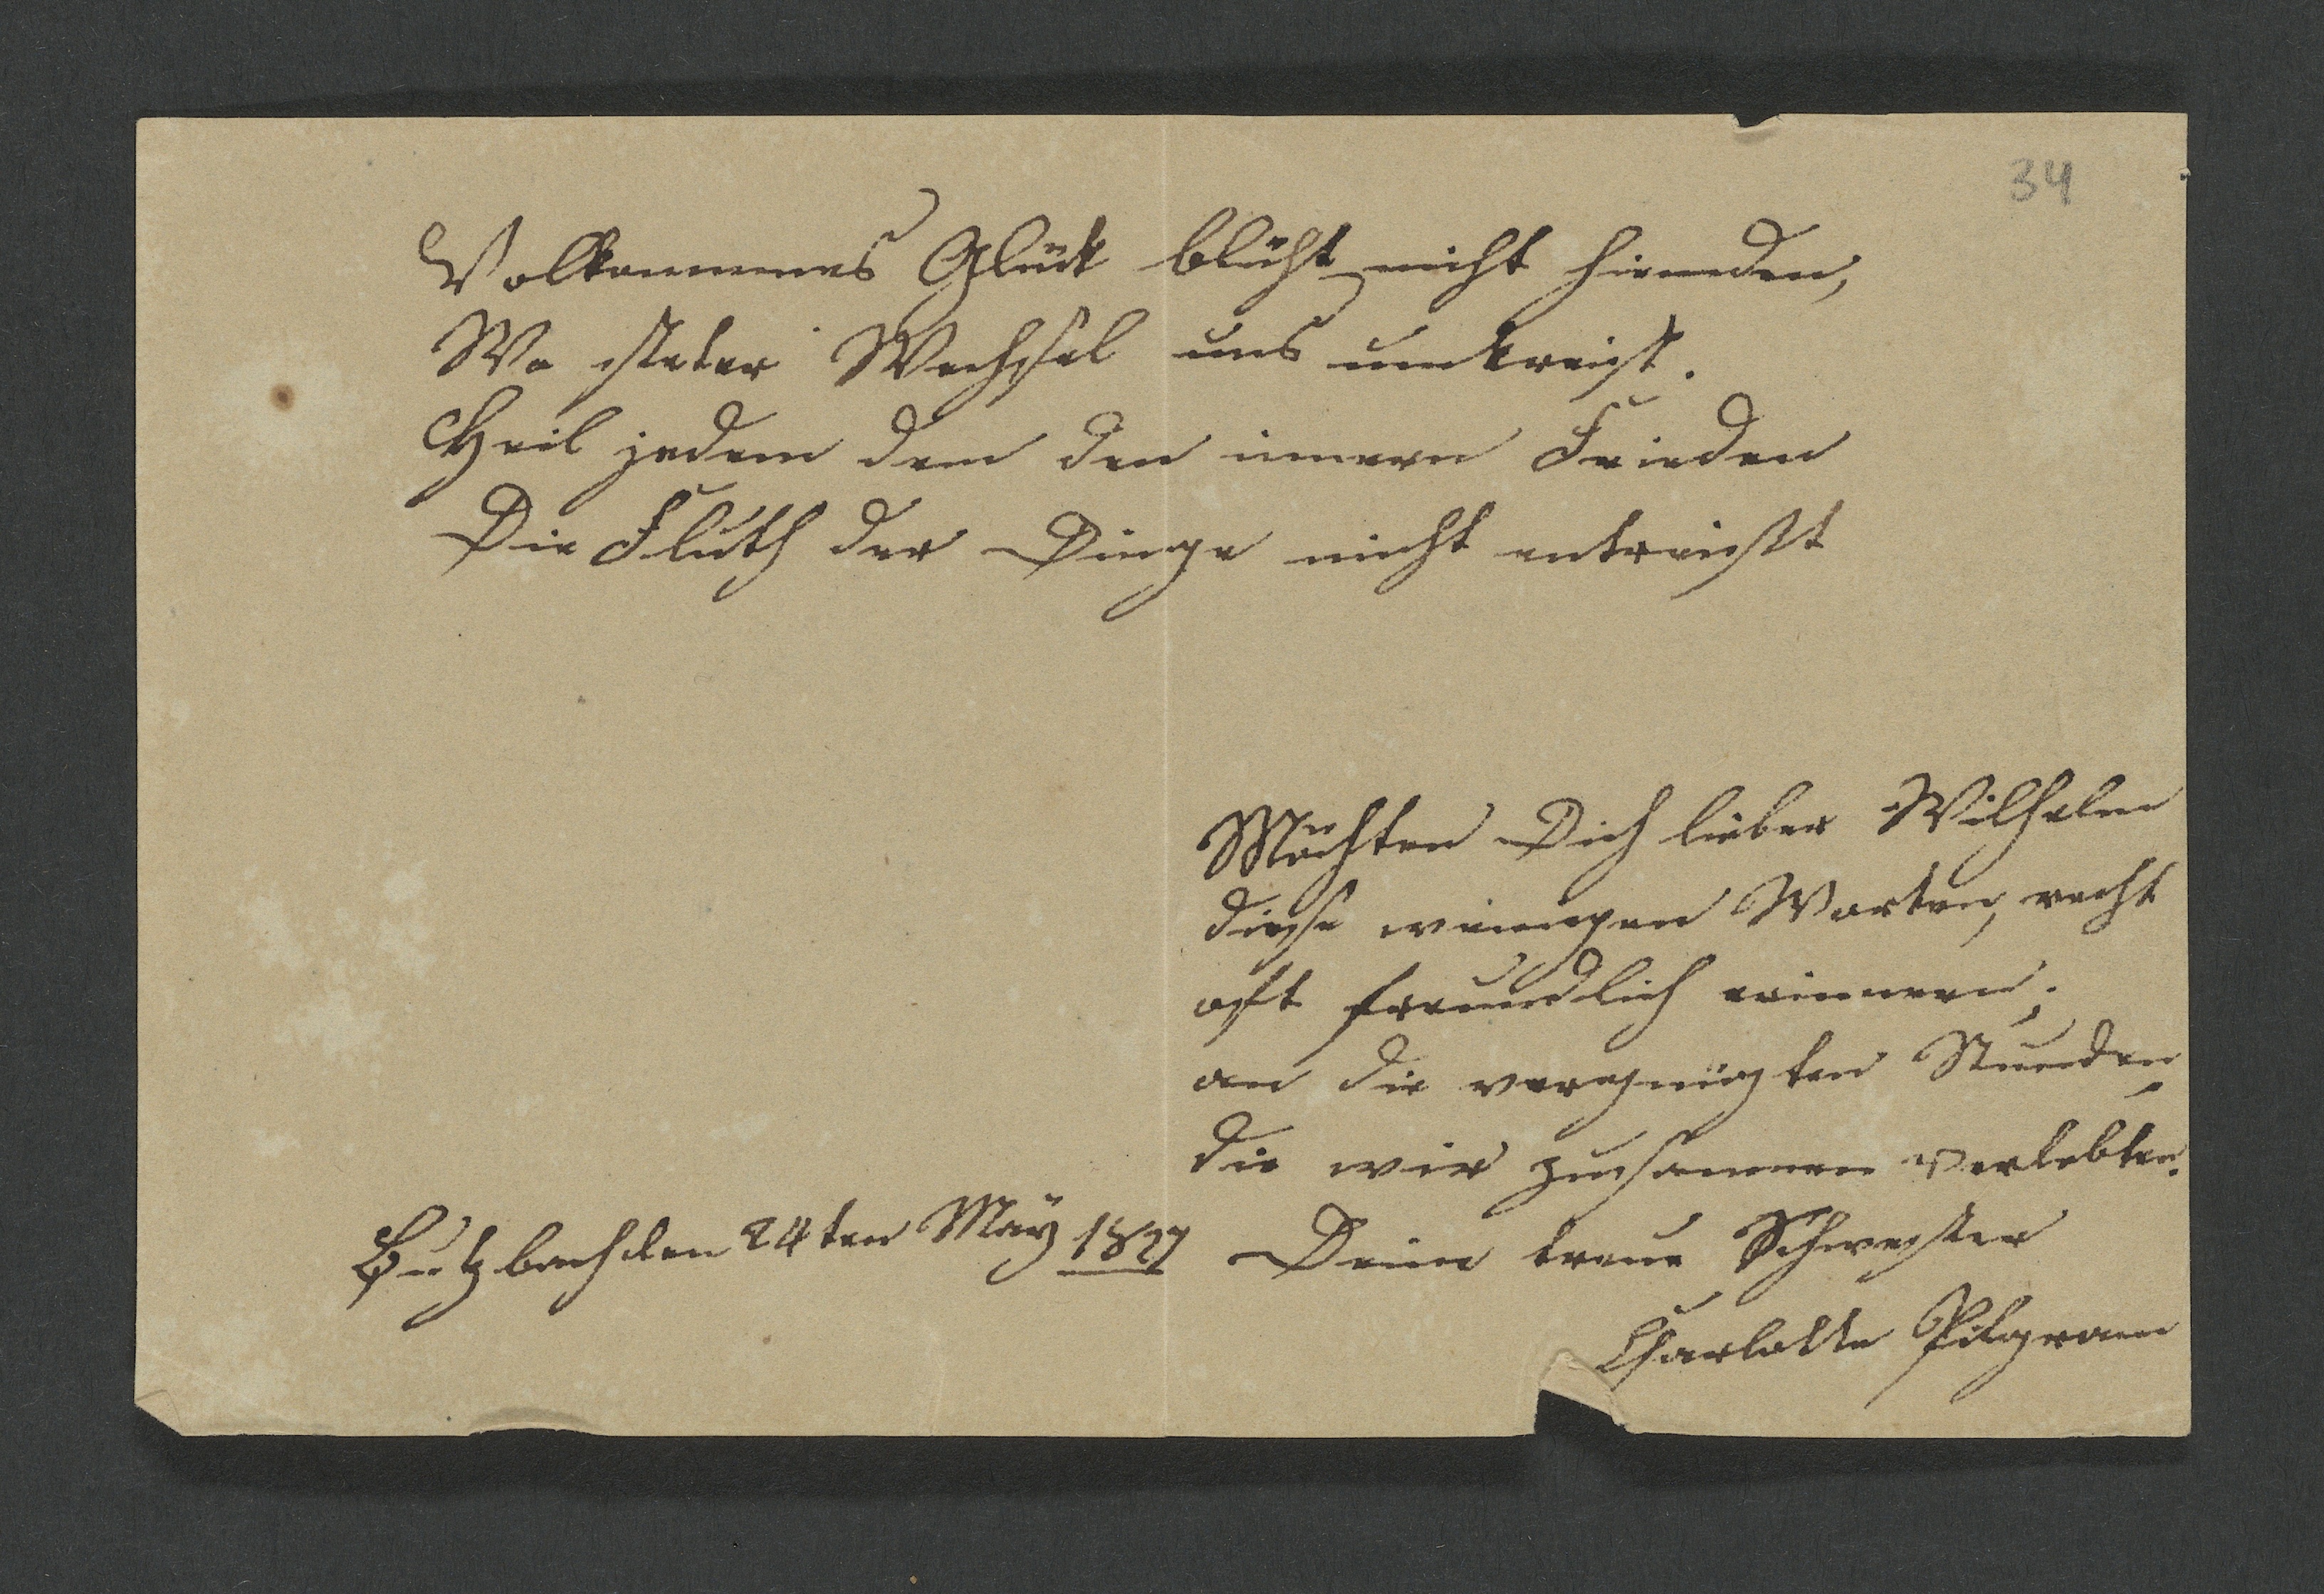 34
Volkommenes Glück blüht nicht hienieden,
Wo steter Wechsel uns umkreist.
Heil jedem dem den innern Frieden
Die Fluth der Dinge nicht entreißt
Möchten Dich lieber Wilhelm
diese wenigen Worten, recht
oft freundlich erinnern,
an die vergnügten Stunden
die wir zusammen verlebten.
Butzbach den 24ten März 1827
Deine treue Schwester
Charlotte Pilgram